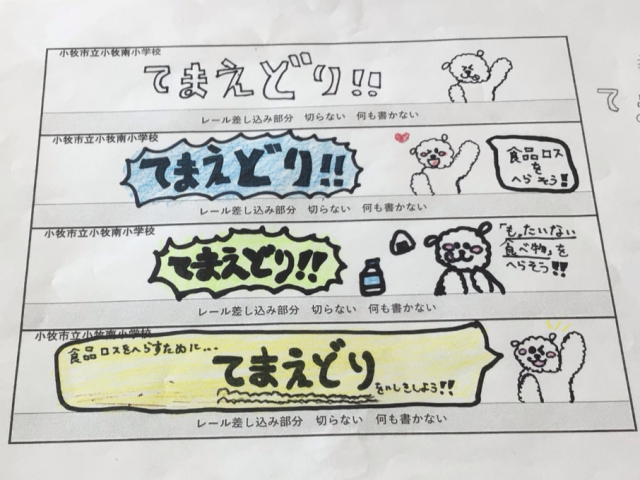 小牧市立小牧南小学校
てまえどり!!
レール差し込み部分 切らない 何も書かない
小牧市立小牧南小学校
てまえどり!!
食品ロス
を
へらそう!!
レール差し込み部分 切らない 何も書かない
小牧市立小牧南小学校
てまえどり!!
「もったいない
食べ物」を
へらそう!!
レール差し込み部分 切らない 何も書かない
小牧市立小牧南小学校
食品ロスをへらすために...
てまえどりをいしきしよう!!
レール差し込み部分 切らない 何も書かない
て